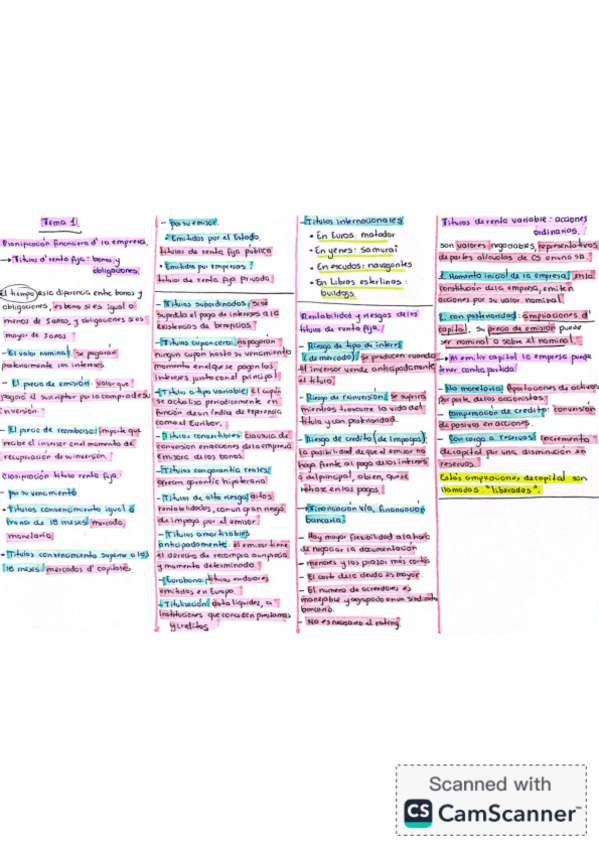 Tema 1
Planificación financiera d' la empresa.
→ Títulos d' renta fija: bonos y
obligaciones.
El tiempo es la diferencia entre bonos y
obligaciones, es bono si es igual o
menos de 5 años, y obligaciones si es
mayor de 5 años.
- El valor nominal: se pagarán
posteriormente los intereses.
- El precio de emisión: valor que
pagará el suscriptor por la compra de su
inversión.
- El precio de reembolso: importe que
recibe el inversor en el momento de
recuperación de su inversión.
Clasificación título renta fija.
- por su vencimiento
• Títulos con vencimiento igual o
menor de 18 meses: mercado
monetario.
• Títulos con vencimiento superior a los
18 meses: mercados d' capitales.
- por su emisor.
• Emitidos por el Estado.
títulos de renta fija pública
• Emitidos por empresas
títulos de renta fija privada.
- Títulos subordinados: si se
supedita el pago de intereses a la
existencia de beneficios.
- Títulos cupón cero: no pagarán
ningún cupón hasta su vencimiento
momento en el que se pagan los
intereses junto con el principal
- Títulos a tipo variable: El cupón
se actualiza periodicamente en
función de un índice de referencia
como el Euribor.
- Títulos convertibles: clausula de
conversión en acciones de la empresa
emisora de los bonos.
- Títulos con garantía reales:
ofrecen garantía hipotecaria.
- Títulos de alto riesgo: altas
rentabilidades, con un gran riesgo
de impago por el emisor
- Títulos amortizables
anticipadamente: el emisor tiene
el derecho de recompra a un precio
y momento determinado.
- Eurobono: títulos en dolares
emitidos en Europa.
+ Titulización: da la liquidez, a
instituciones que conceden prestamos
y creditos
- Títulos internacionales
• En Euros: matador
• En yenes: samurai
• En escudos: navegantes
• En Libras esterlinas:
bulldogs
Rentabilidad y riesgos de los
títulos de renta fija.
- Riesgo de tipo de interes
(de mercado): se producen cuando
el inversor vende anticipadamente
el título.
- Riesgo de reinversión: se sufrirá
mientras trascurre la vida del
título y con posterioridad.
- Riesgo de crédito (de impagos):
la posibilidad de que el emisor no
haga frente al pago de los intereses
o al principal, o bien, que se
retrase en los pagos.
→ Financiación v/a, financiación
bancaria:
- Hay mayor flexibilidad a la hora
de negociar la documentación
- menores y los plazos más cortos
- El coste de la deuda es mayor.
- El número de acreedores es
manejable y agrupado en un sindicato
bancario.
- No es necesario el rating.
Títulos de renta variable: acciones
ordinarias.
son valores negociables, representativos
de partes alicuotas de CS en una SA.
1. Momento inicial de la empresa: en la
constitución de la empresa, emiten
acciones por su valor nominal.
2. con posteridad: ampliaciones d'
capital. Su precio de emisión puede
ser nominal o sobre el nominal.
→ Al emitir capital la empresa puede
tener contrapartida:
- No monetaria: Aportaciones de activos
por parte de los accionistas.
- compensación de crédito: conversión
de pasivos en acciones.
- Con cargo a reservas: incremento
de capital por una disminución en
reservas.
Estas ampliaciones de capital son
llamadas "liberadas".
Scanned with
CS CamScanner™